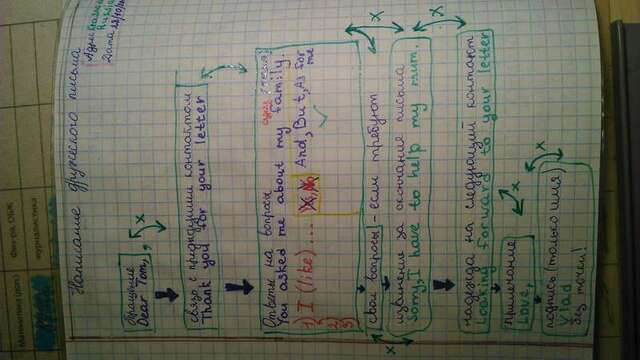 Математика (доп.)
Физ-ра, ОБЖ
журналистика
Написание дружеского письма
Адрес
Russia
Дата
обращение
Dear Tom,
x
связь с предыдущим контактом
Thank you for your letter
Ответы на вопросы
You asked me about my family.
1) I (like) ... And, But, As for me
2)
3)
свои вопросы - если требуют
x x
извинение за окончание письма
Sorry, I have to help my mum.
x
надежда на следующий контакт
Looking forward to your letter
примечание
Love,
x
x
подпись (только имя)
Vlad
без точки!